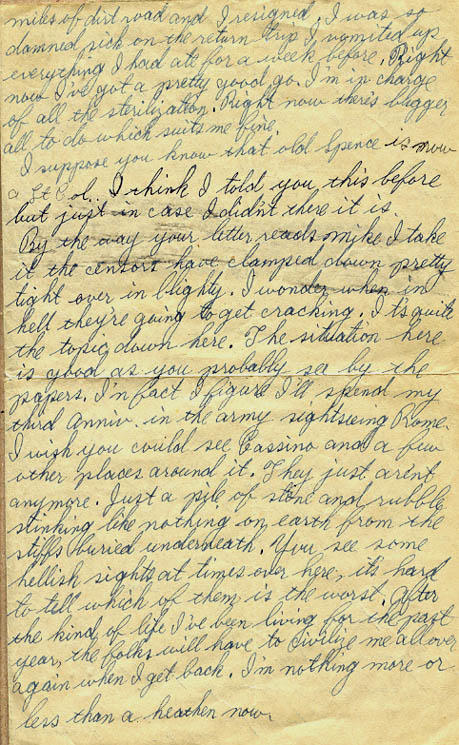 miles of dirt road and I resigned. I was so
damned sick on the return trip I vomited up
everything I had ate for a week before. Right
now I've got a pretty good go. I'm in charge
of all the sterilization. Right now there's bugger
all to do which suits me fine.
I suppose you know that old Spence is now
a Lt Col. I think I told you this before
but just in case I didn't there it is.
By the way your letter reads Mike I take
it the censors have clamped down pretty
tight over in blighty. I wonder when in
hell they're going to get cracking. It's quite
the topic down here. The situation here
is good as you probably see by the
papers. In fact I figure I'll spend my
third Anniv. in the army sightseeing Rome.
I wish you could see Cassino and a few
other places around it. They just aren't
anymore. Just a pile of stone and rubble
stinking like nothing on earth from the
stiffs buried underneath. You see some
hellish sights at times over here, it's hard
to tell which of them is the worst. After
the kind of life I've been living for the past
year, the folks will have to civilize me all over
again when I get back. I'm nothing more or
less than a heathen now.